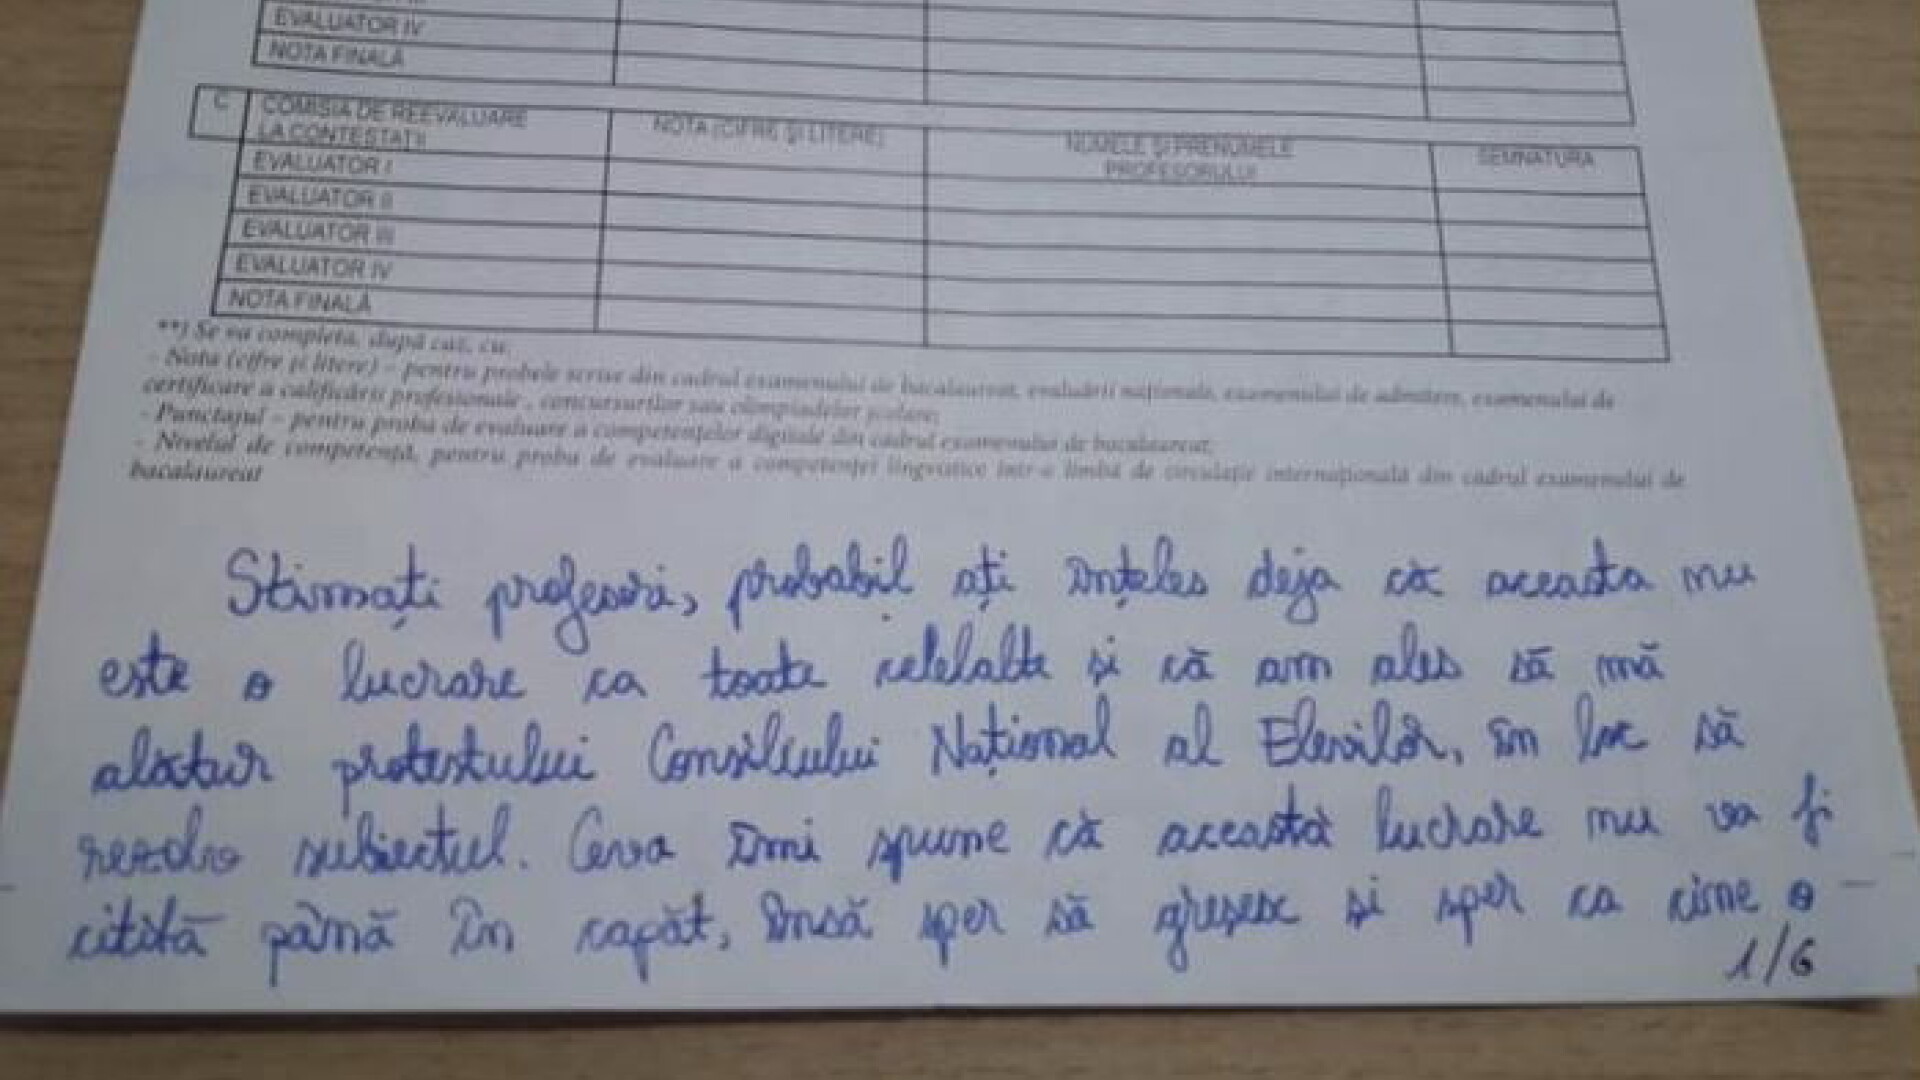 EVALUATOR IV
NOTA FINALĂ
C COMISIA DE REEVALUARE LA CONTESTAȚII NOTA (CIFRE ȘI LITERE) NUMELE ȘI PRENUMELE PROFESORULUI SEMNĂTURA
EVALUATOR I
EVALUATOR II
EVALUATOR III
EVALUATOR IV
NOTA FINALĂ
**) Se va completa, după caz, cu:
- Nota (cifre și litere) – pentru probele scrise din cadrul examenului de bacalaureat, evaluării naționale, examenului de admitere, examenului de
certificare a calificării profesionale , concursurilor sau olimpiadelor școlare;
- Punctajul – pentru proba de evaluare a competențelor digitale din cadrul examenului de bacalaureat;
- Nivelul de competență, pentru proba de evaluare a competenței lingvistice într-o limbă de circulație internațională din cadrul examenului de
bacalaureat
Stimați profesori, probabil ați înțeles deja că aceasta nu
este o lucrare ca toate celelalte și că am ales să mă
alătur protestului Consiliului Național al Elevilor, în loc să
rezolv subiectul. Ceva îmi spune că această lucrare nu va fi
citită până în capăt, însă sper să greșesc și sper ca cine o
1/6